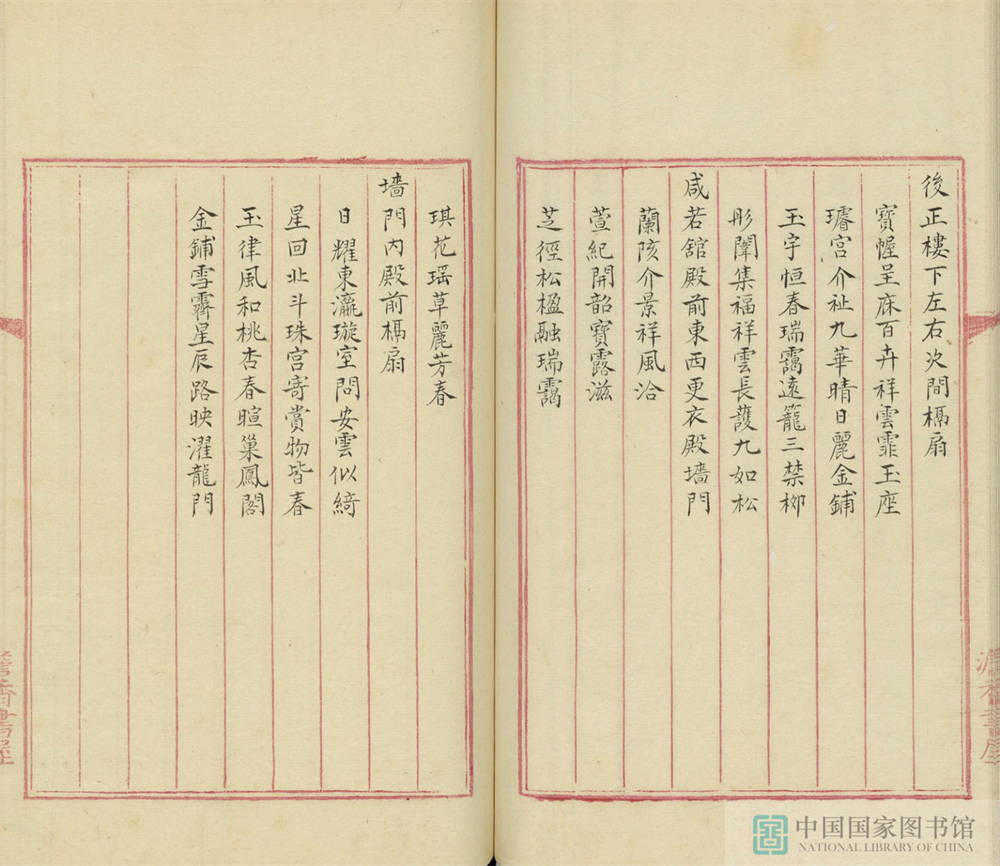 後正樓下左右次間槅扇
寶幄呈庥百卉祥雲霏玉座
璿宮介祉九華晴日麗金鋪
玉宇恒春瑞靄遠籠三禁柳
彤闈集福祥雲長護九如松
咸若舘殿前東西更衣殿墻門
蘭陔介景祥風洽
萱紀開韶寶露滋
芝徑松楹融瑞靄
琪花瑶草麗芳春
墻門內殿前槅扇
日耀東瀛璇室問安雲似綺
星回北斗珠宮寄賞物皆春
玉律風和桃杏春暄巢鳳閣
金鋪雪霽星辰路映濯龍門
中国国家图书馆
NATIONAL LIBRARY OF CHINA